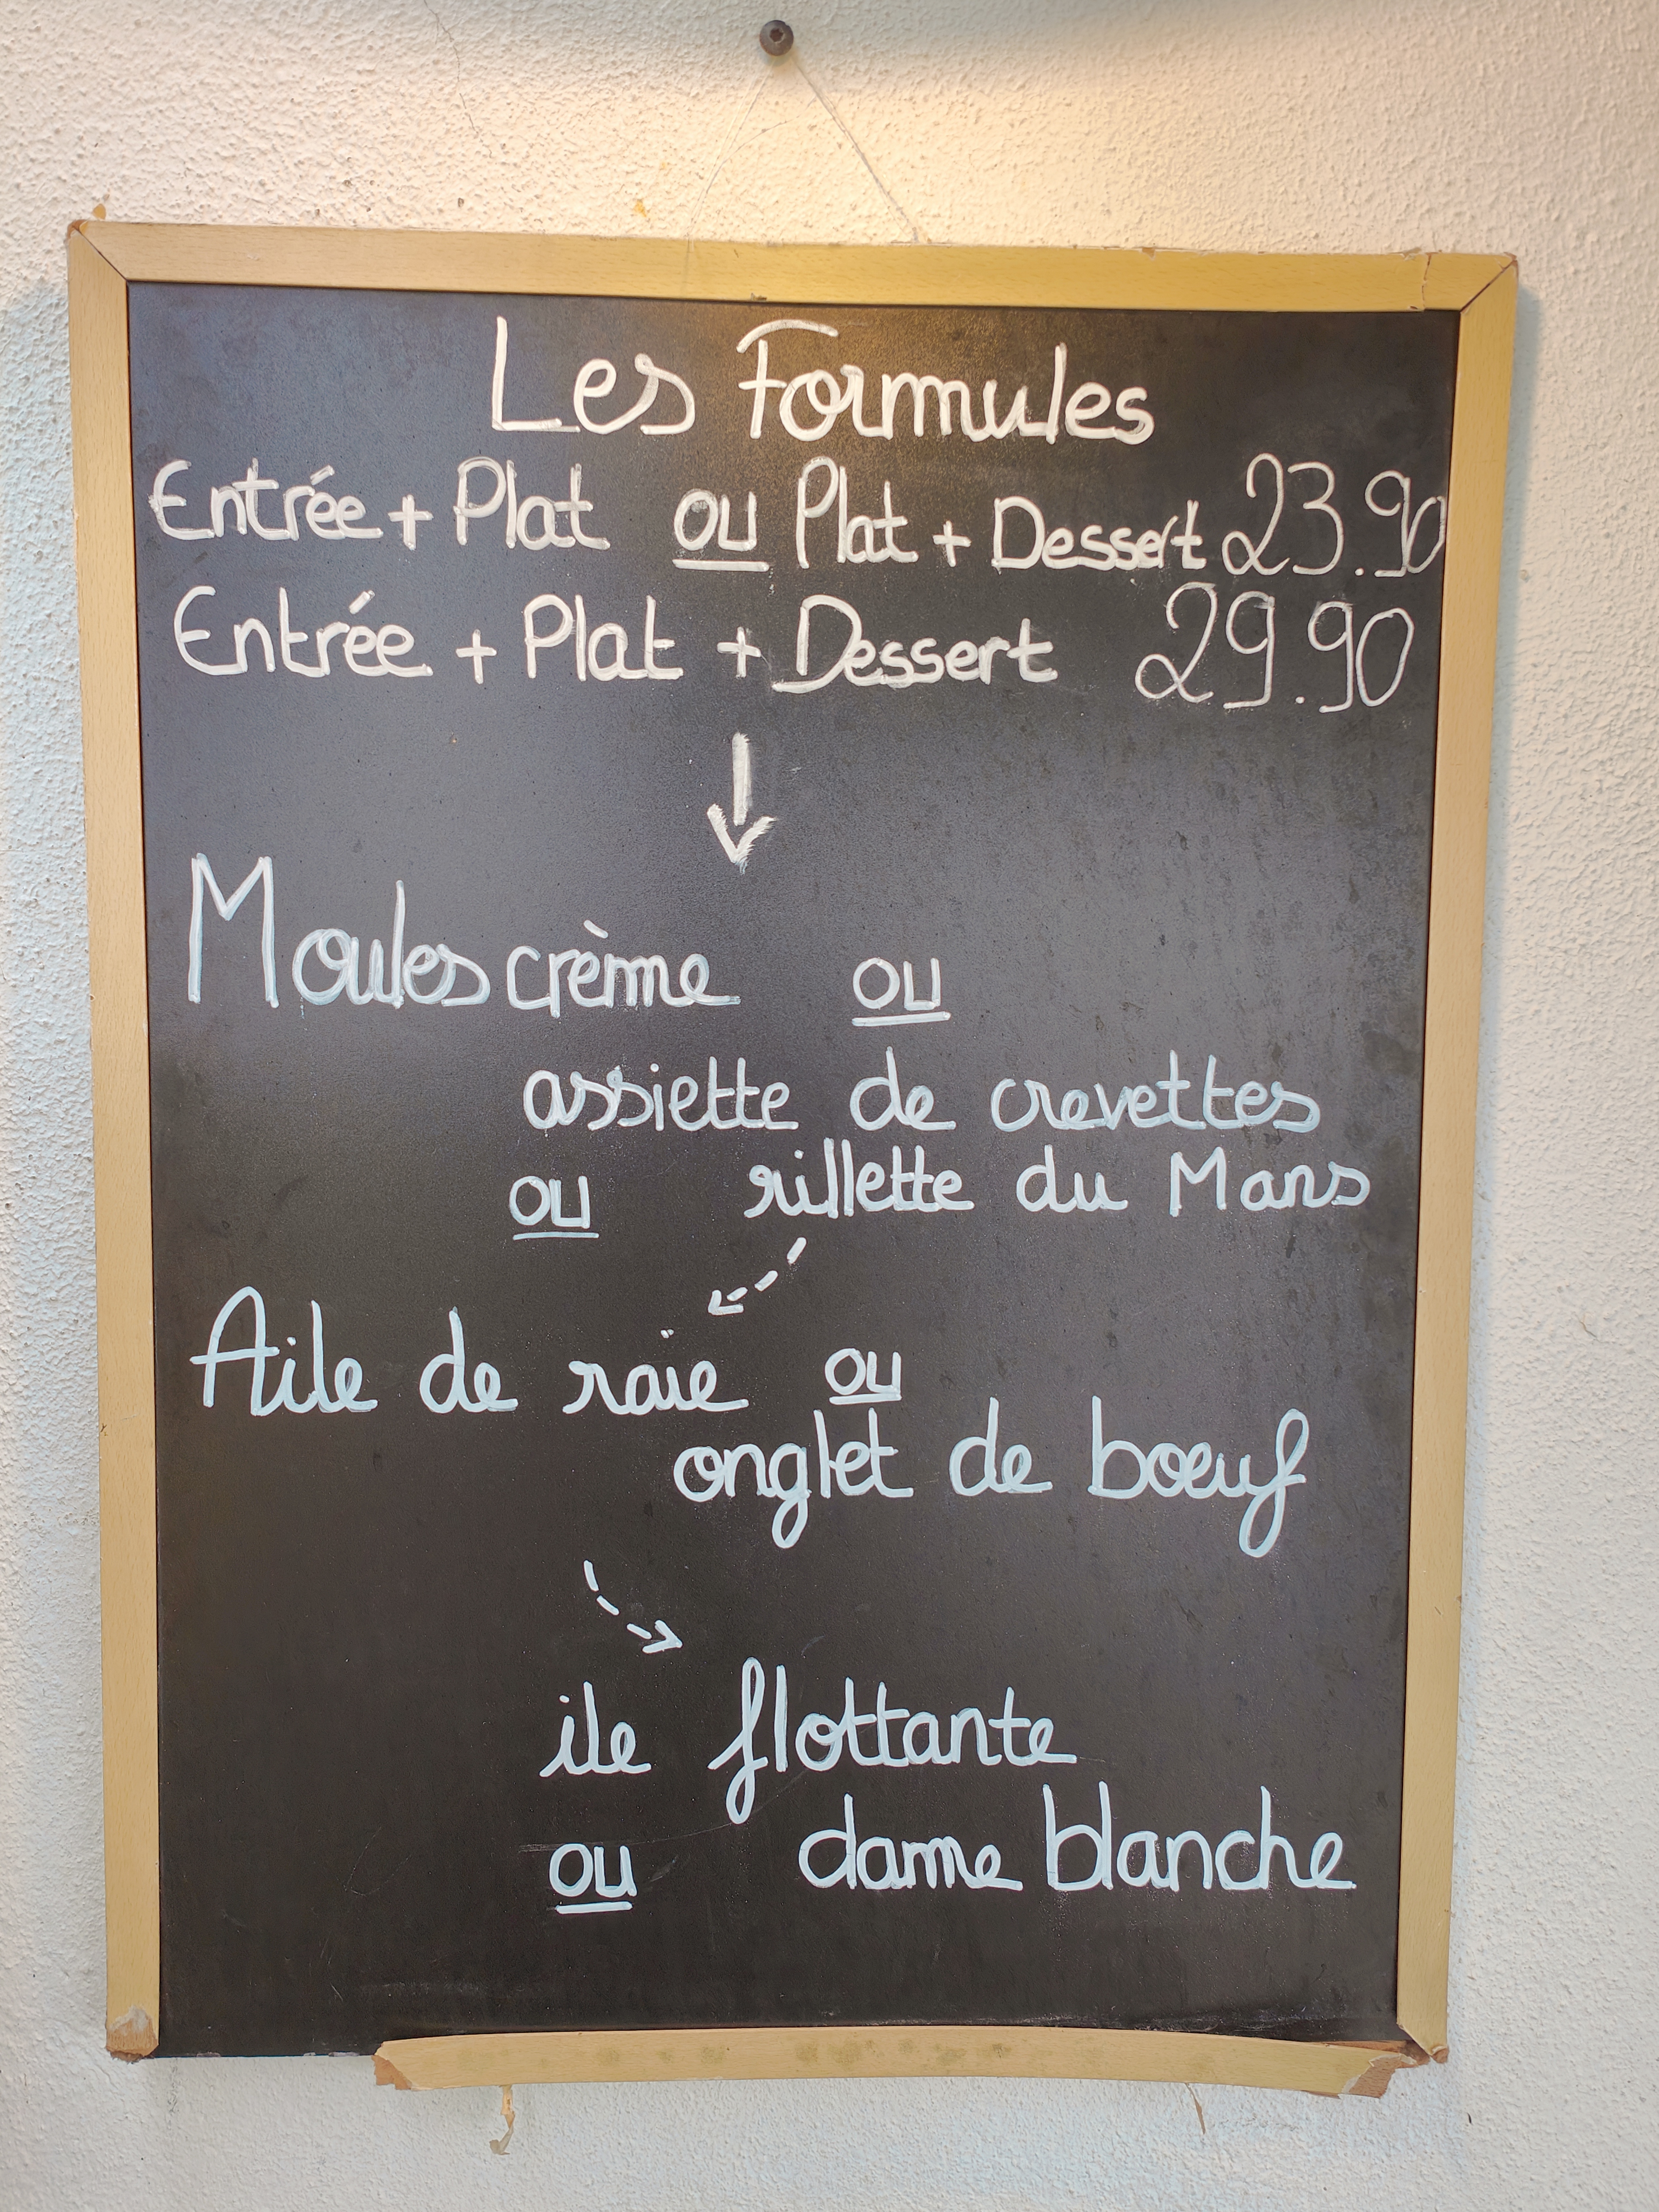 Les Formules
Entrée + Plat ou Plat + Dessert 23.90
Entrée + Plat + Dessert 29.90
Moules crème ou
assiette de crevettes
ou rillette du Mans
Aile de raie ou
onglet de bœuf
ile flottante
ou dame blanche